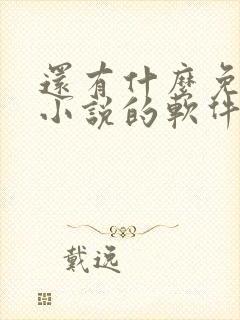 還有什麼免
小說的軟件
戴逸